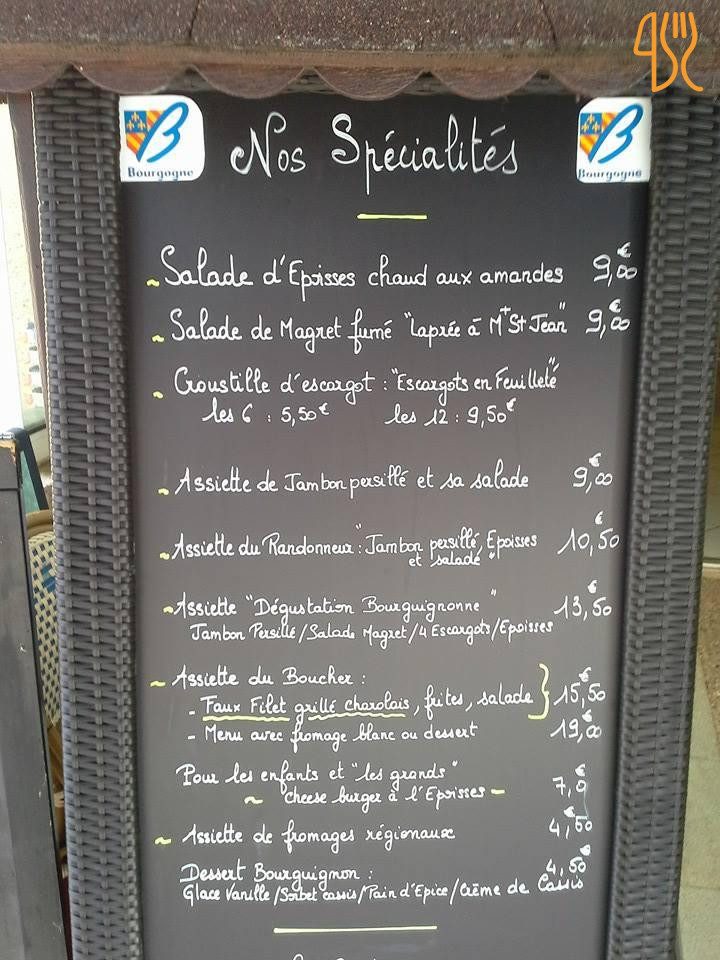 B Bourgogne
Nos Spécialités
B Bourgogne
~ Salade d'Epoisses chaud aux amandes 9,00€
~ Salade de Magret fumé "Laprée à Mt St Jean" 9,00€
~ Croustille d'escargot : "Escargots en Feuilleté"
les 6 : 5,50€ les 12 : 9,50€
~ Assiette de Jambon persillé et sa salade 9,00€
~ Assiette du Randonneur : "Jambon persillé, Epoisses 10,50€
et salade"
~ Assiette "Dégustation Bourguignonne" 13,50€
Jambon Persillé/Salade Magret/4 Escargots/Epoisses
~ Assiette du Boucher :
- Faux Filet grillé charolais, frites, salade } 15,50€
- Menu avec fromage blanc ou dessert 19,00€
Pour les enfants et "les grands"
~ cheese burger à l'Epoisses - 7,0€
~ Assiette de fromages régionaux 4,50€
Dessert Bourguignon : 4,50€
Glace Vanille/Sorbet cassis/Pain d'Epice/Crème de Cassis